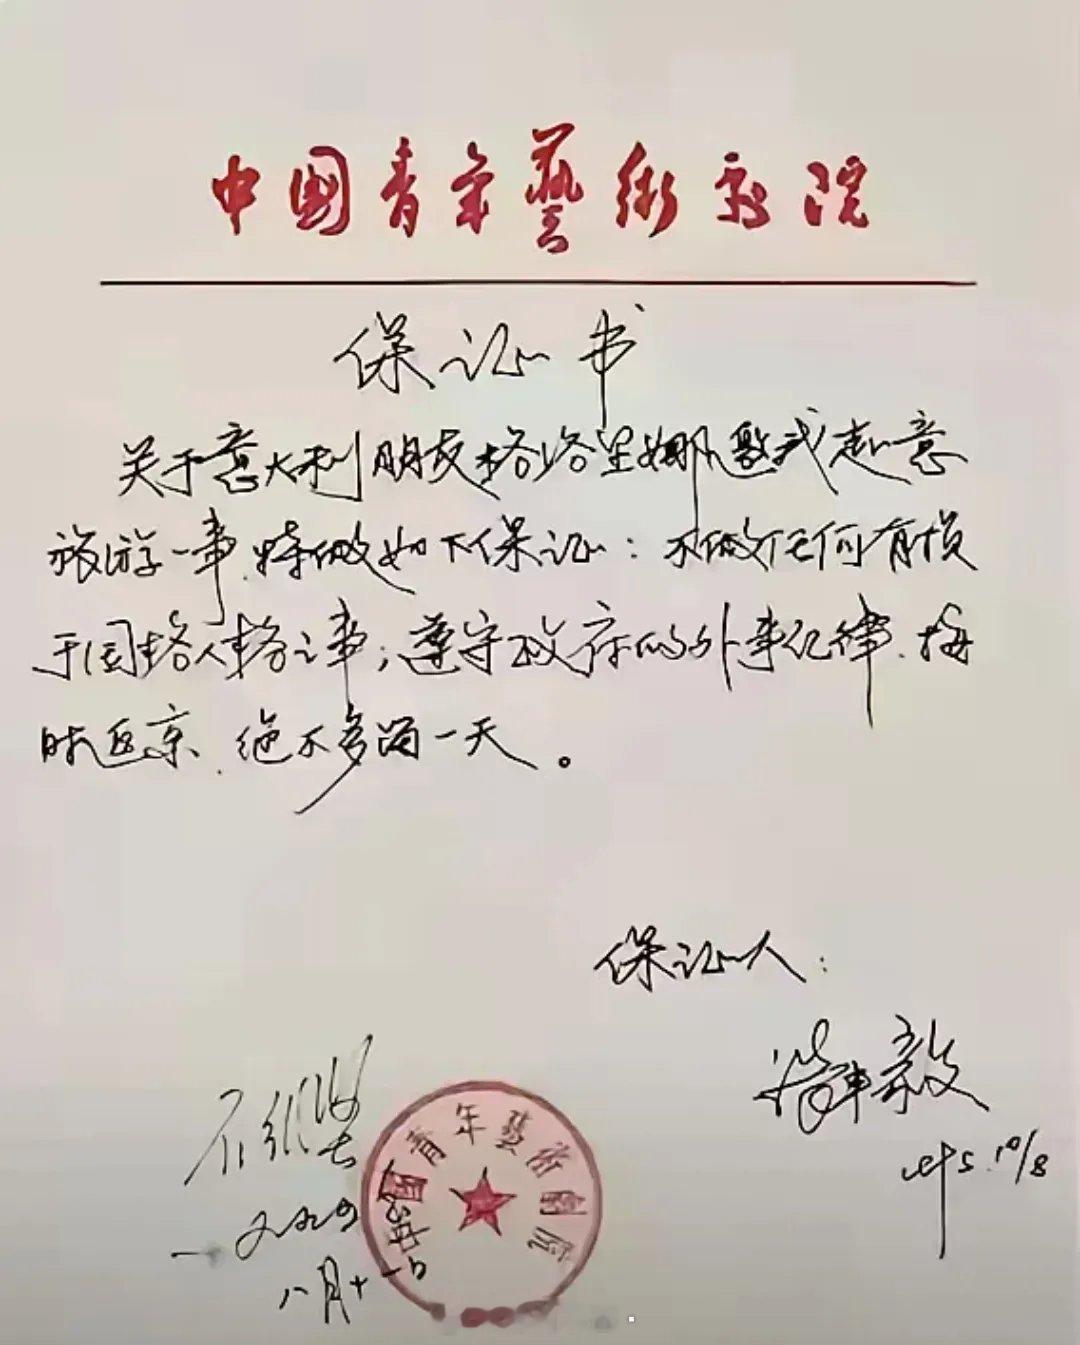 中国青年藝術剧院
保证书
关于意大利朋友格洛里娜邀我赴意
旅游一事，特做如下保证：不做任何有损
于国格人格之事；遵守政府的外事纪律，按
时返京，绝不多留一天。
保证人：
石维坚
八月十一日
国青年藝術劇院